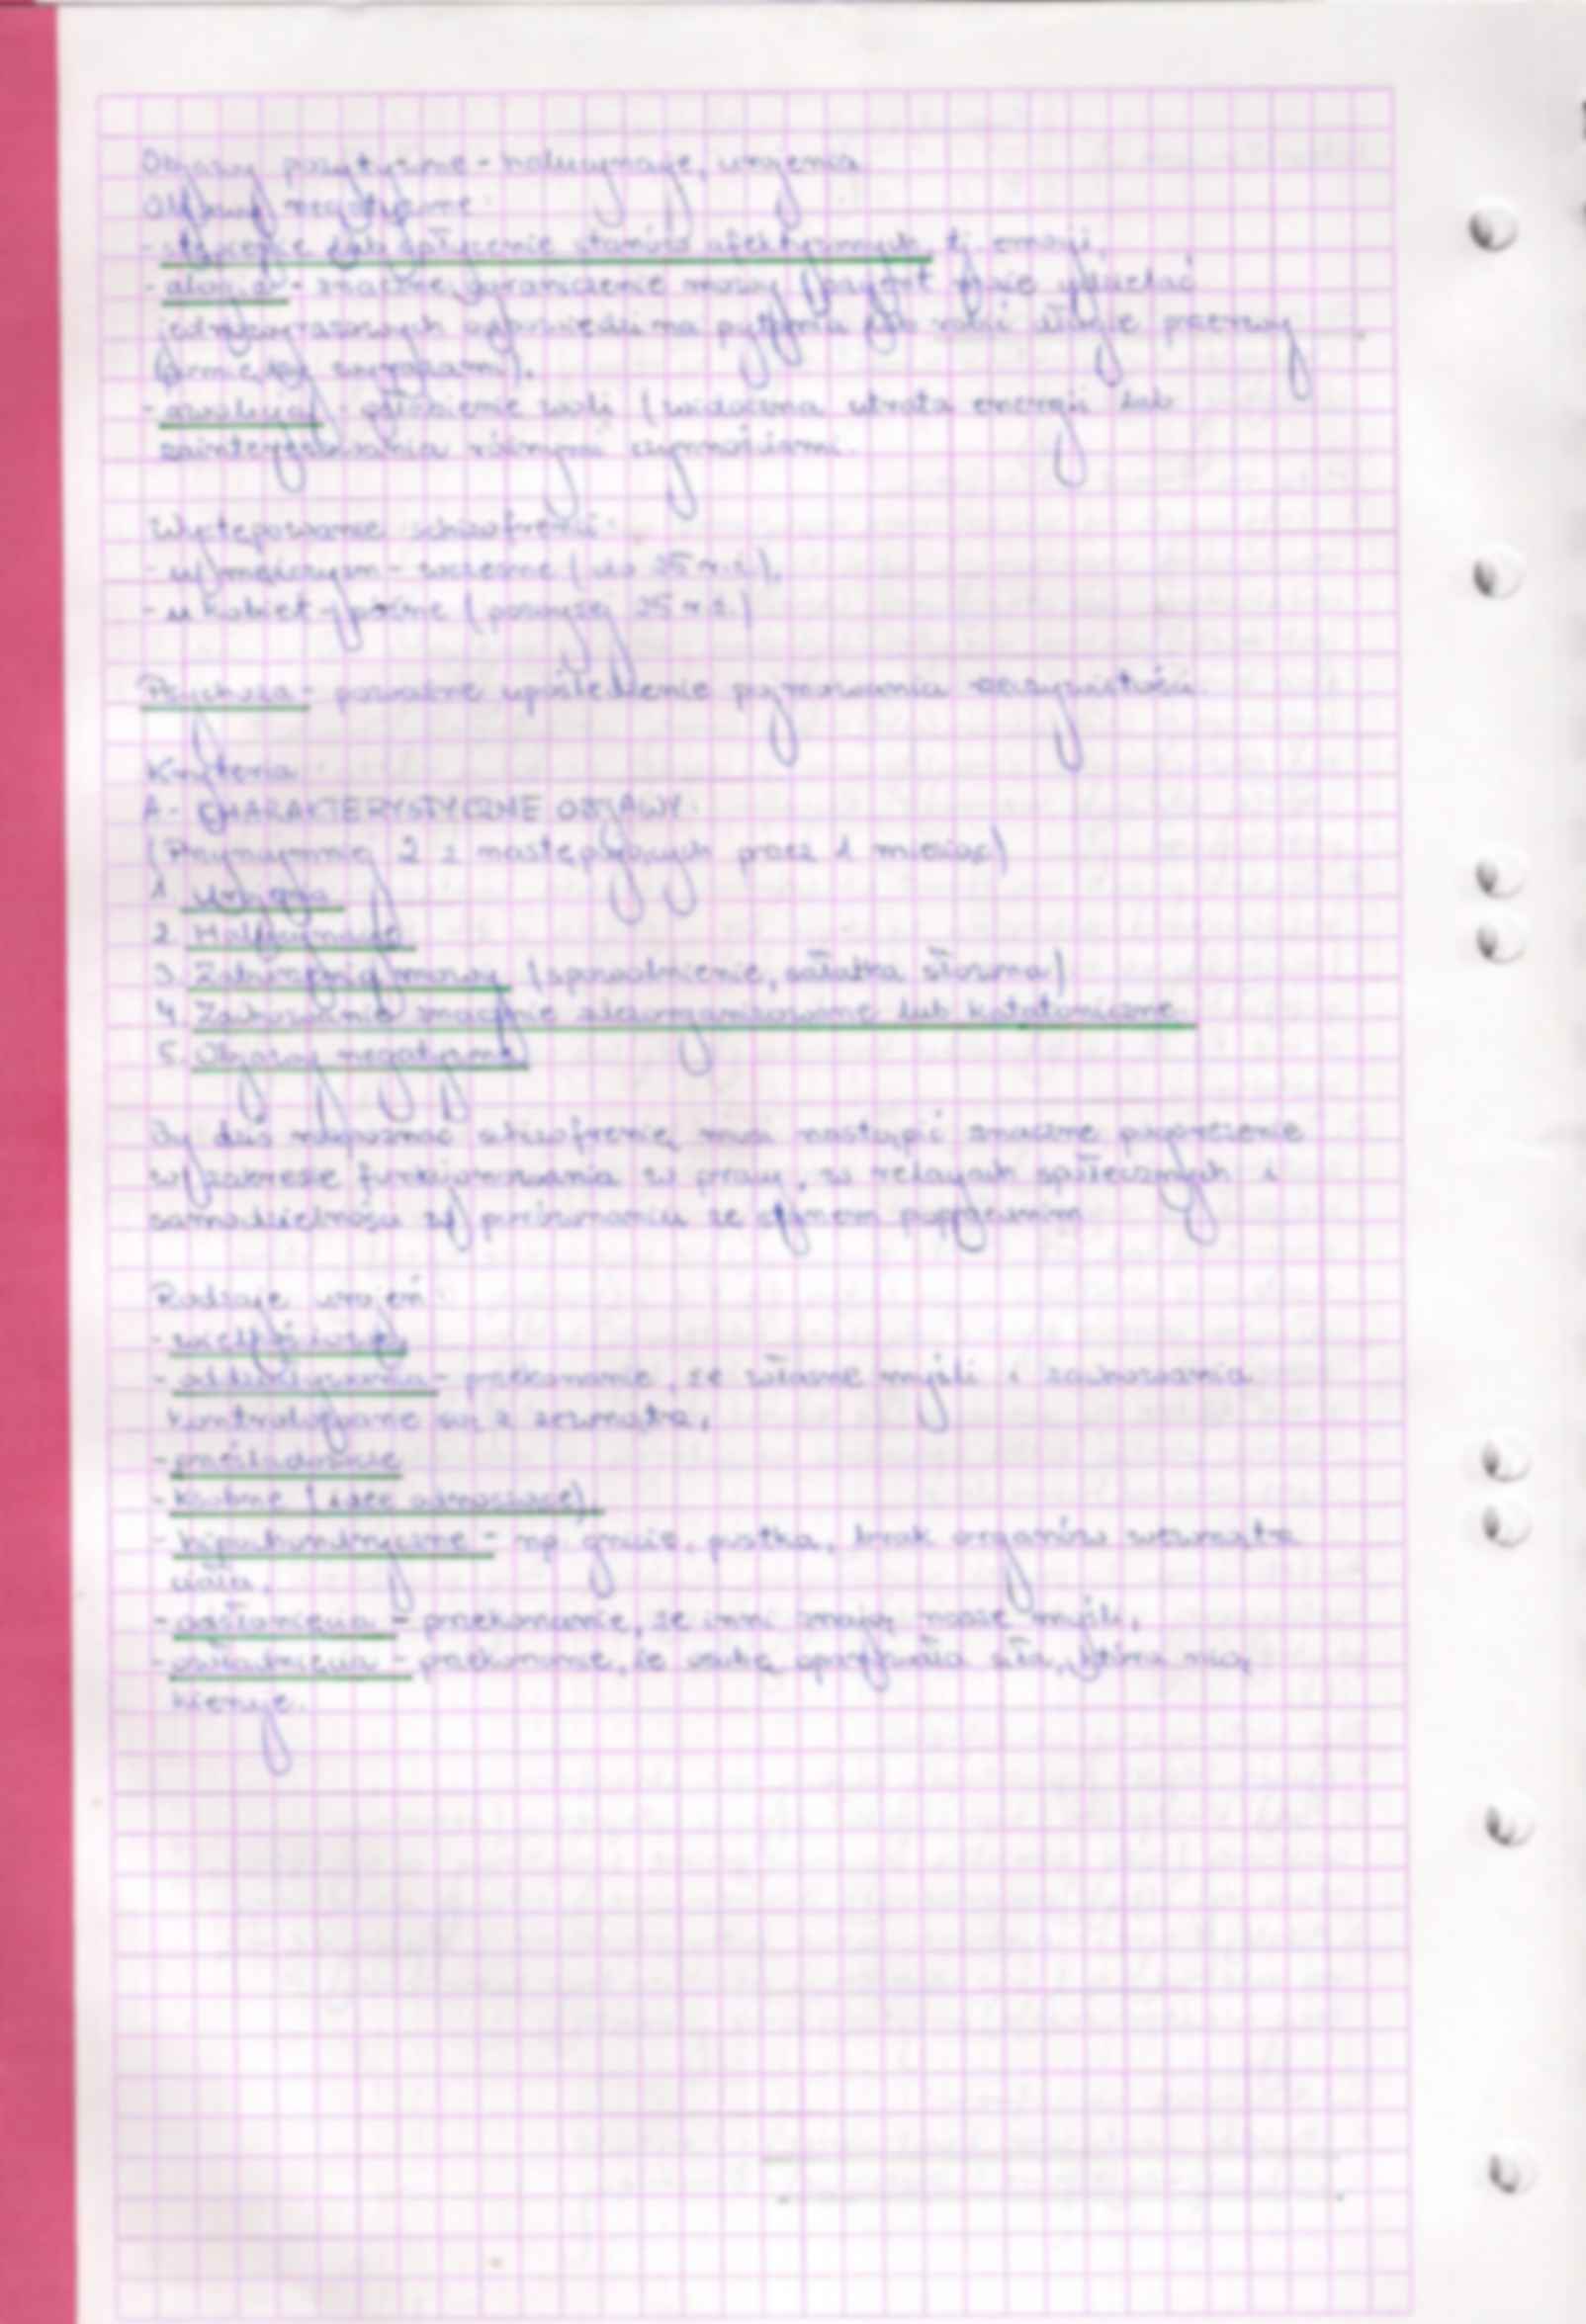 Objawy pozytywne - halucynacje, urojenia
Objawy negatywne:
- stępienie lub spłycenie stanów afektywnych, tj. emocji,
- alogia - znaczne ograniczenie mowy (pacjent może udzielać
jednowyrazowych odpowiedzi na pytania lub robi długie przerwy
pomiędzy wyrazami),
- awolicja - osłabienie woli (widoczna utrata energii lub
zainteresowania różnymi czynnościami.
Występowanie schizofrenii:
- u mężczyzn - wczesne (do 25 r.ż.),
- u kobiet - późne (powyżej 25 r.ż.)
Psychoza - poważne upośledzenie pojmowania rzeczywistości
Kryteria:
A - CHARAKTERYSTYCZNE OBJAWY:
(Przynajmniej 2 z następujących przez 1 miesiąc)
1. Urojenia
2. Halucynacje
3. Zaburzenia mowy (sałatka słowna)
4. Zachowanie znacznie zdezorganizowane lub katatoniczne
5. Objawy negatywne
By dziś rozpoznać schizofrenię, musi nastąpić znaczne pogorszenie
w zakresie funkcjonowania w pracy, w relacjach społecznych i
samodzielności w porównaniu ze stanem poprzednim
Rodzaje urojeń:
- wielkościowe
- oddziaływania - przekonanie, że własne myśli i zachowania
kontrolowane są z zewnątrz,
- prześladowcze
- ksobne (idee odnoszące),
- hipochondryczne - np. brak organów wewnątrz
ciała,
- odsłonięcia - przekonanie, że inni znają nasze myśli,
- owładnięcia - przekonanie, że osobę opanowała siła, która nią
kieruje.